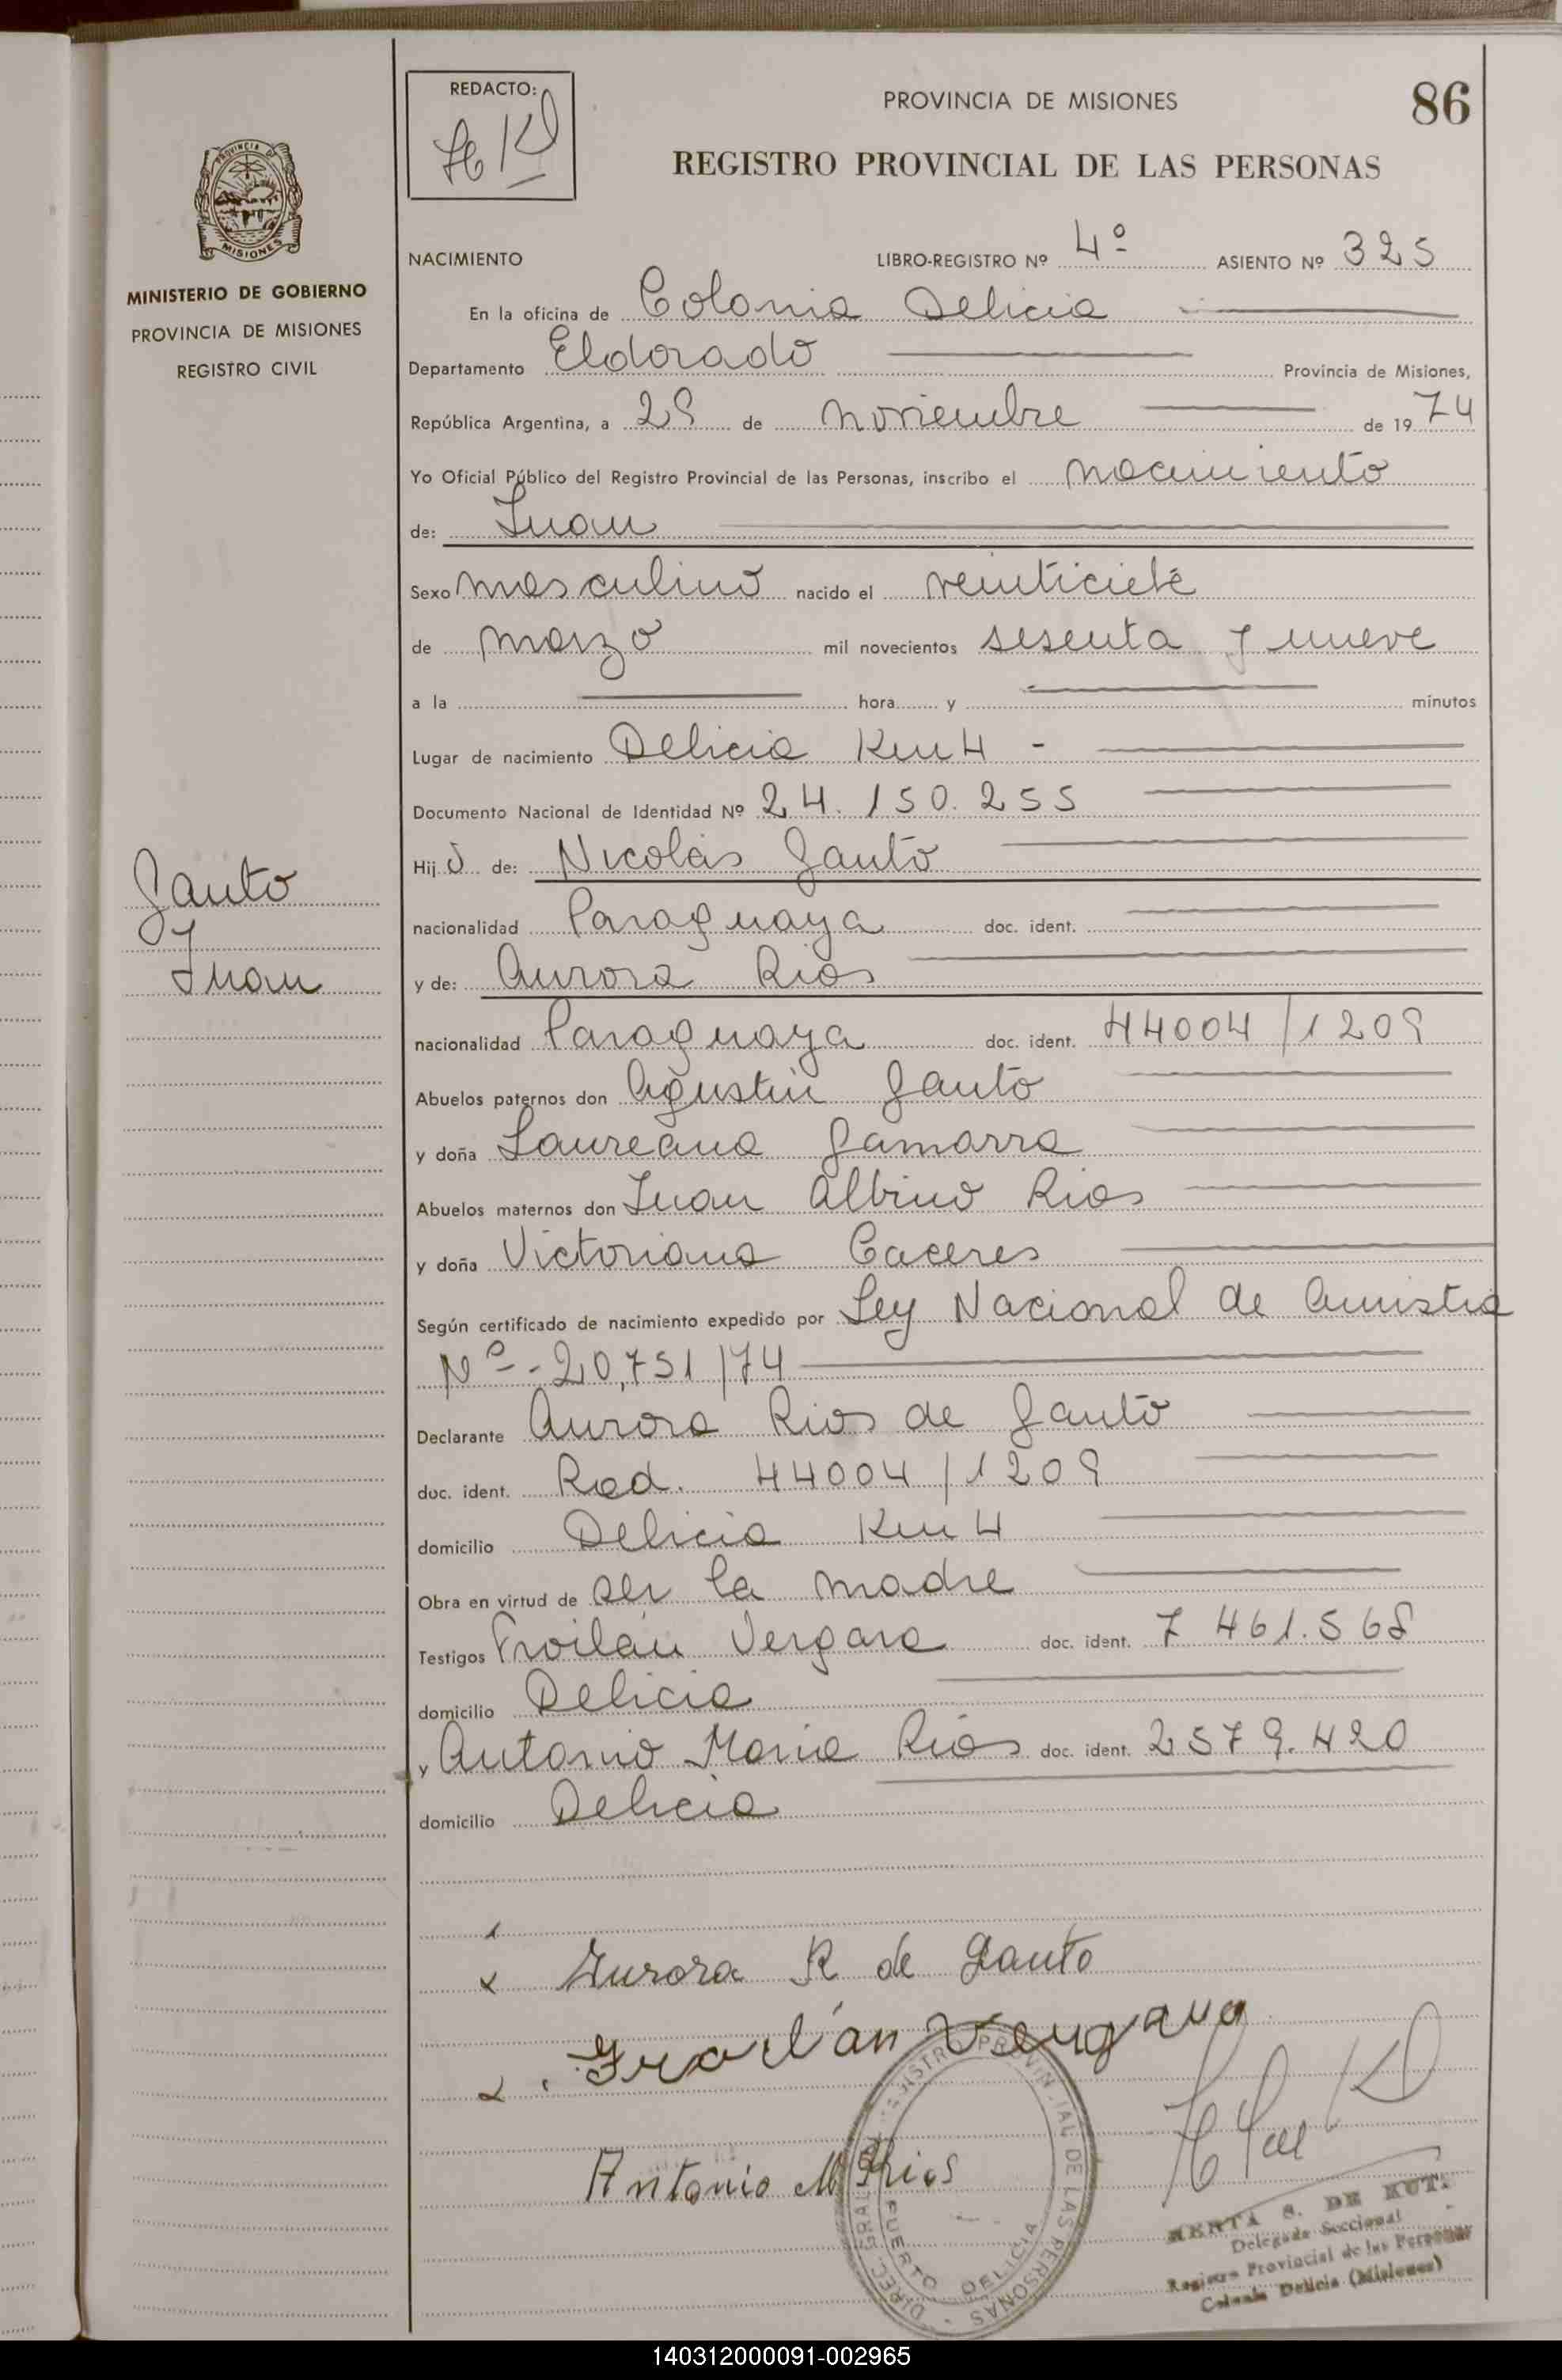 REDACTO:
PROVINCIA DE MISIONES
86
REGISTRO PROVINCIAL DE LAS PERSONAS
PROVINCIA DE
MISIONES
MINISTERIO DE GOBIERNO
PROVINCIA DE MISIONES
REGISTRO CIVIL
NACIMIENTO LIBRO-REGISTRO Nº 4º ASIENTO Nº 325
En la oficina de Colonia Delicia
Departamento Eldorado Provincia de Misiones,
República Argentina, a 29 de noviembre de 1974
Yo Oficial Público del Registro Provincial de las Personas, inscribo el nacimiento
de: Juan
Sexo masculino nacido el veinticiete
de marzo mil novecientos sesenta y nueve
a la hora y minutos
Lugar de nacimiento Delicia Km 4 -
Documento Nacional de Identidad Nº 24.150.255
Hijo de: Nicolás Gauto
nacionalidad Paraguaya doc. ident.
y de: Aurora Rios
nacionalidad Paraguaya doc. ident. 44004/1209
Abuelos paternos don Agustin Gauto
y doña Laureana Gamarra
Abuelos maternos don Juan Albino Rios
y doña Victoriana Caceres
Según certificado de nacimiento expedido por Ley Nacional de Amnistia
Nº - 20,751/74
Declarante Aurora Rios de Gauto
doc. ident. Rad. 44004/1209
domicilio Delicia Km 4
Obra en virtud de ser la madre
Testigos Froilán Vergara doc. ident. 7 461.568
domicilio Delicia
y Antonio Maria Rios doc. ident. 2579.420
domicilio Delicia
Gauto
Juan
Aurora R de Gauto
Froilán Vergara
Antonio M Rios
PUERTO DELICIA
HERTA S. DE
Delegada Seccional
Registro Provincial de las Personas
Colonia Delicia (Misiones)
140312000091-002965